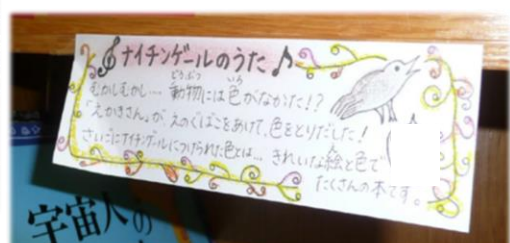 ナイチンゲールのうた
むかしむかし… 動物には色がなかった!?
「えかきさん」が、えのぐばこをあけて、色をとりだした!
さいごにナイチンゲールにつけられた色とは… きれいな絵と色で
たくさんの本です。
宇宙人の